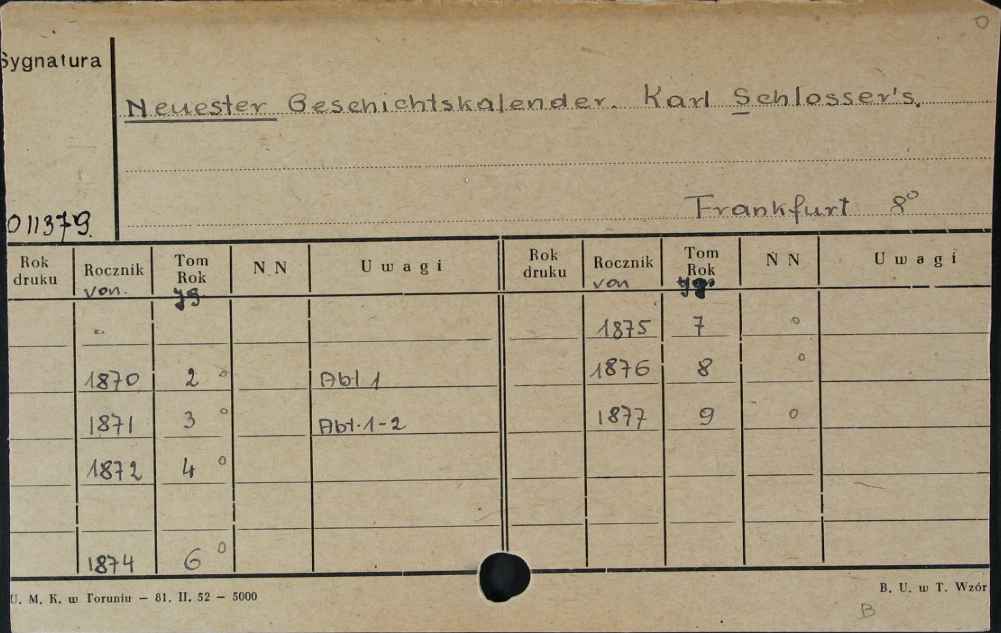 Sygnatura
Neuester Geschichtskalender. Karl Schlosser's.
Frankfurt 8°
011379.
Rok druku Rocznik Tom Rok N N Uwagi Rok druku Rocznik Tom Rok N N Uwagi
von. Jg. von Jg.
1875 7 °
1870 2 ° Abt 1 1876 8 °
1871 3 ° Abt. 1-2 1877 9 °
1872 4 °
1874 6 °
U. M. K. w Toruniu — 81. II. 52 — 5000 B. U. w T. Wzór
B